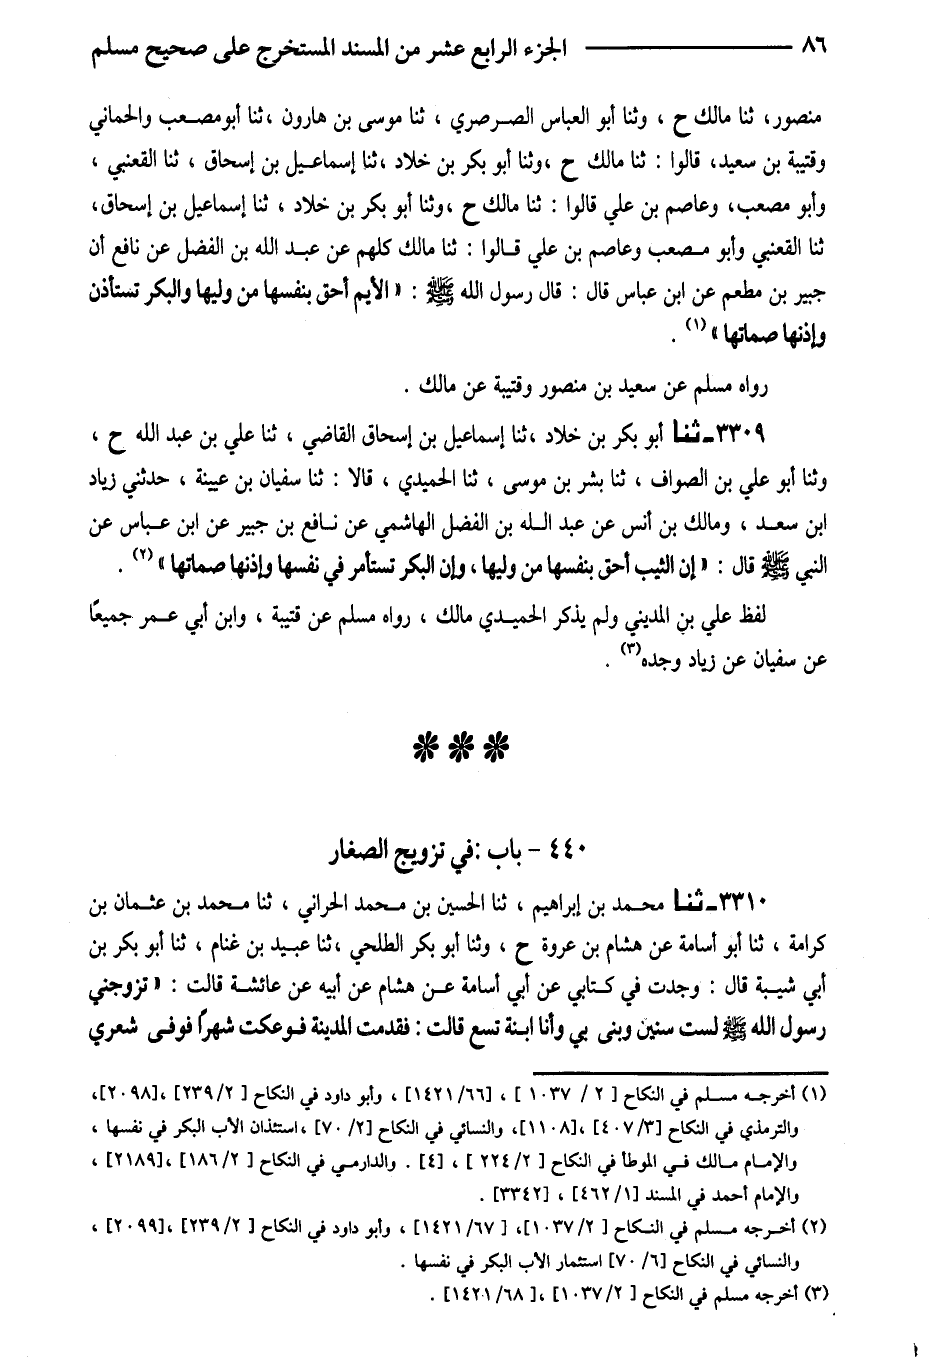 ٨٦ ـــــــــــــ الجزء الرابع عشر من المسند المستخرج على صحيح مسلم
منصور، ثنا مالك ح ، وثنا أبو العباس الصرصري ، ثنا موسى بن هارون ،ثنا أبومصعب والحماني
وقتيبة بن سعيد، قالوا : ثنا مالك ح ،وثنا أبو بكر بن خلاد ،ثنا إسماعيل بن إسحاق ، ثنا القعنبي ،
وأبو مصعب، وعاصم بن علي قالوا : ثنا مالك ح ،وثنا أبو بكر بن خلاد ، ثنا إسماعيل بن إسحاق،
ثنا القعنبي وأبو مصعب وعاصم بن علي قالوا : ثنا مالك كلهم عن عبد الله بن الفضل عن نافع أن
جبير بن مطعم عن ابن عباس قال : قال رسول الله ﷺ : « الأيم أحق بنفسها من وليها والبكر تستأذن
وإذنها صماتها » (١) .
رواه مسلم عن سعيد بن منصور وقتيبة عن مالك .
٣٣٠٩ـ ثنا أبو بكر بن خلاد ،ثنا إسماعيل بن إسحاق القاضي ، ثنا علي بن عبد الله ح ،
وثنا أبو علي بن الصواف ، ثنا بشر بن موسى ، ثنا الحميدي ، قالا : ثنا سفيان بن عيينة ، حدثني زياد
ابن سعد ، ومالك بن أنس عن عبد الله بن الفضل الهاشمي عن نافع بن جبير عن ابن عباس عن
النبي ﷺ قال : « إن الثيب أحق بنفسها من وليها ، وإن البكر تستأمر في نفسها وإذنها صماتها » (٢) .
لفظ علي بن المديني ولم يذكر الحميدي مالك ، رواه مسلم عن قتيبة ، وابن أبي عمر جميعًا
عن سفيان عن زياد وجده(٣) .
٤٤٠ - باب :في تزويج الصغار
٣٣١٠ـ ثنا محمد بن إبراهيم ، ثنا الحسين بن محمد الحراني ، ثنا محمد بن عثمان بن
كرامة ، ثنا أبو أسامة عن هشام بن عروة ح ، وثنا أبو بكر الطلحي ،ثنا عبيد بن غنام ، ثنا أبو بكر بن
أبي شيبة قال : وجدت في كتابي عن أبي أسامة عن هشام عن أبيه عن عائشة قالت : « تزوجني
رسول الله ﷺ لست سنين وبنى بي وأنا ابنة تسع قالت : فقدمت المدينة فوعكت شهرًا فوفى شعري
(١) أخرجه مسلم في النكاح [ ٢ / ١٠٣٧ ] ، [١٤٢١/٦٦] ، وأبو داود في النكاح [ ٢/ ٢٣٩] ،[٢٠٩٨]،
والترمذي في النكاح [٤٠٧/٣] ،[١١٠٨]، والنسائي في النكاح [٢/ ٧٠] ،استئذان الأب البكر في نفسها ،
والإمام مالك في الموطأ في النكاح [ ٢/ ٢٢٤ ] ، [٤] . والدارمي في النكاح [ ٢/ ١٨٦] ،[٢١٨٩] ،
والإمام أحمد في المسند [٤٦٢/١] ، [٣٣٤٢] .
(٢) أخرجه مسلم في النكاح [ ٢/ ١٠٣٧]، [ ١٤٢١/٦٧] ، وأبو داود في النكاح [ ٢/ ٢٣٩] ،[٢٠٩٩] ،
والنسائي في النكاح [٦/ ٧٠] استئمار الأب البكر في نفسها .
(٣) أخرجه مسلم في النكاح [ ٢/ ١٠٣٧] ،[ ١٤٢١/٦٨] .